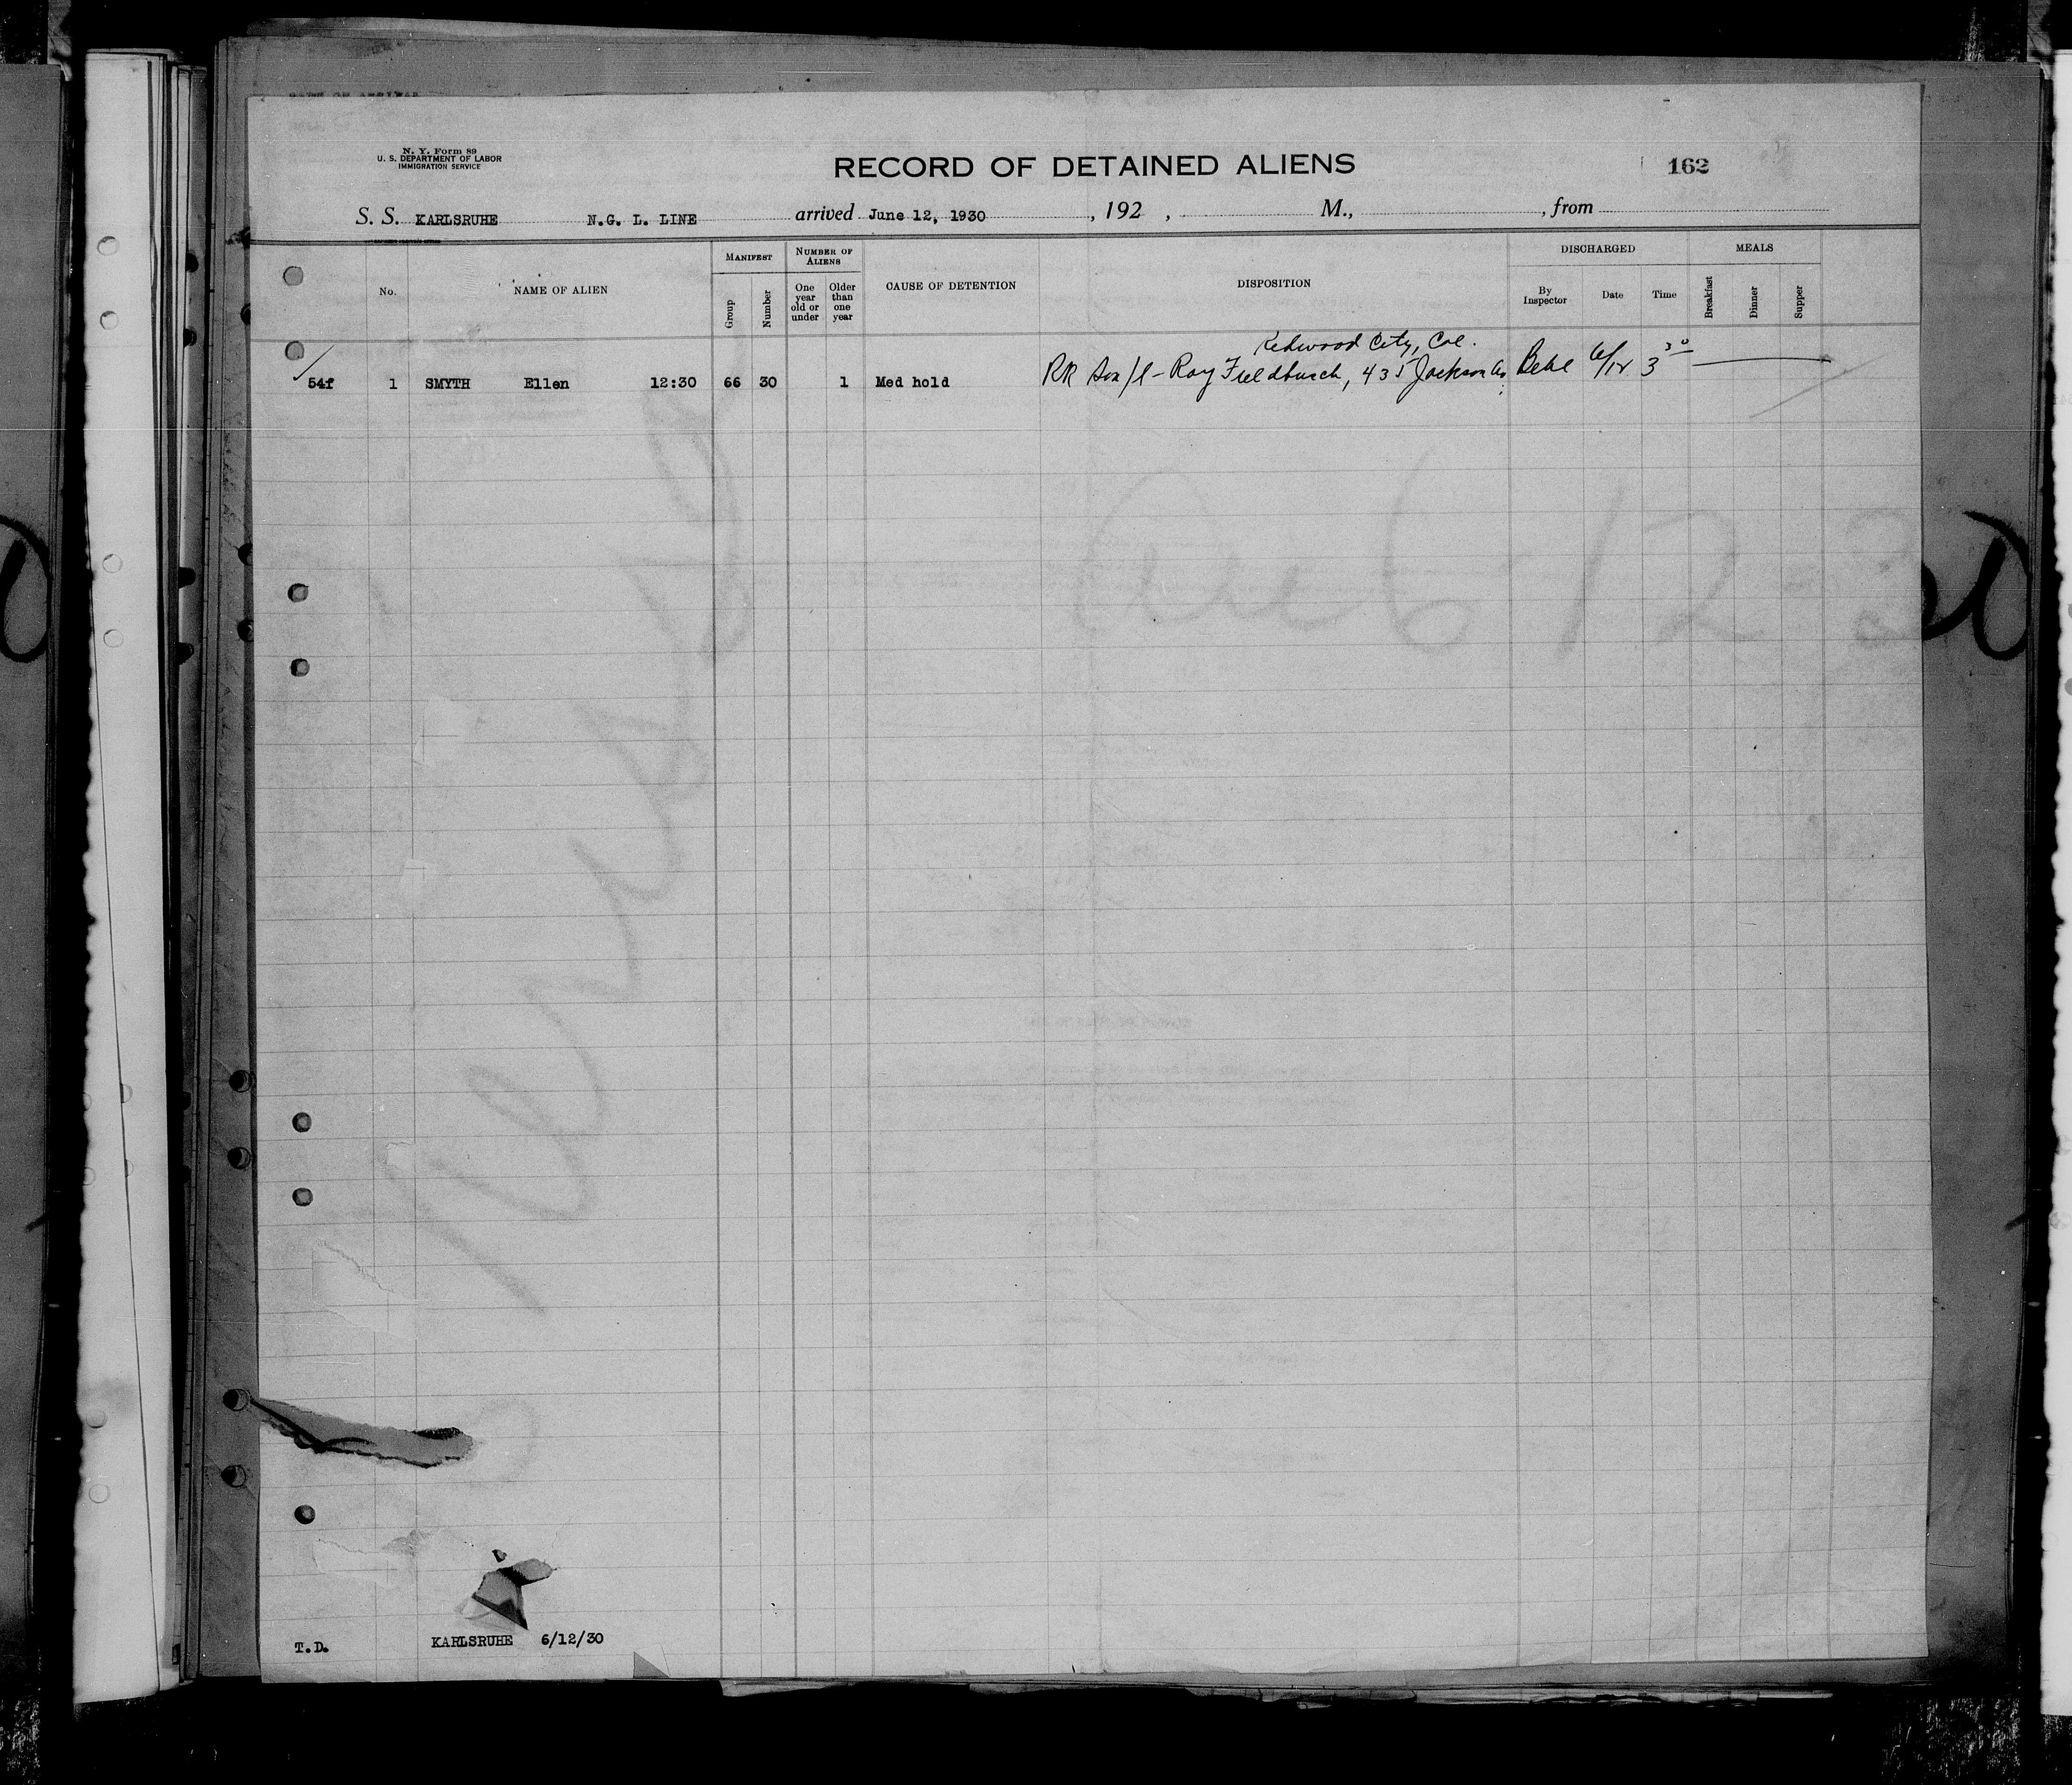 N. Y. Form 89
U. S. DEPARTMENT OF LABOR
IMMIGRATION SERVICE
RECORD OF DETAINED ALIENS
162
S. S. KARLSRUHE N.G. L. LINE arrived June 12, 1930 , 192 , M., , from
No.
NAME OF ALIEN
MANIFEST
Group
Number
NUMBER OF ALIENS
One year old or under
Older than one year
CAUSE OF DETENTION
DISPOSITION
DISCHARGED
By Inspector
Date
Time
MEALS
Breakfast
Dinner
Supper
Redwood City, Cal.
54f 1 SMYTH Ellen 12:30 66 30 1 Med hold RR Son/l - Roy Fieldbusch, 435 Jackson Av. 6/12 3 30
T.D. KARLSRUHE 6/12/30